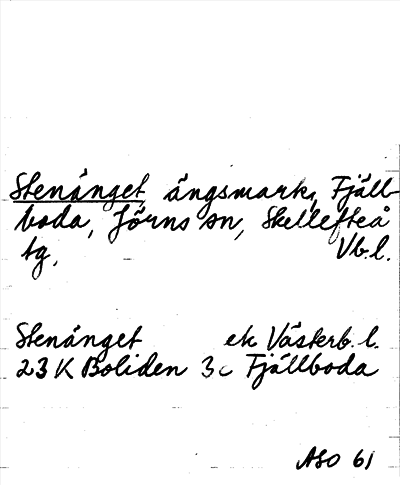 Stenänget, ängsmark, Fjäll-
boda, Jörns sn, Skellefteå
tg, Vb.l.
Stenänget ek Västerb.l.
23K Boliden 3c Fjällboda
ASO 61